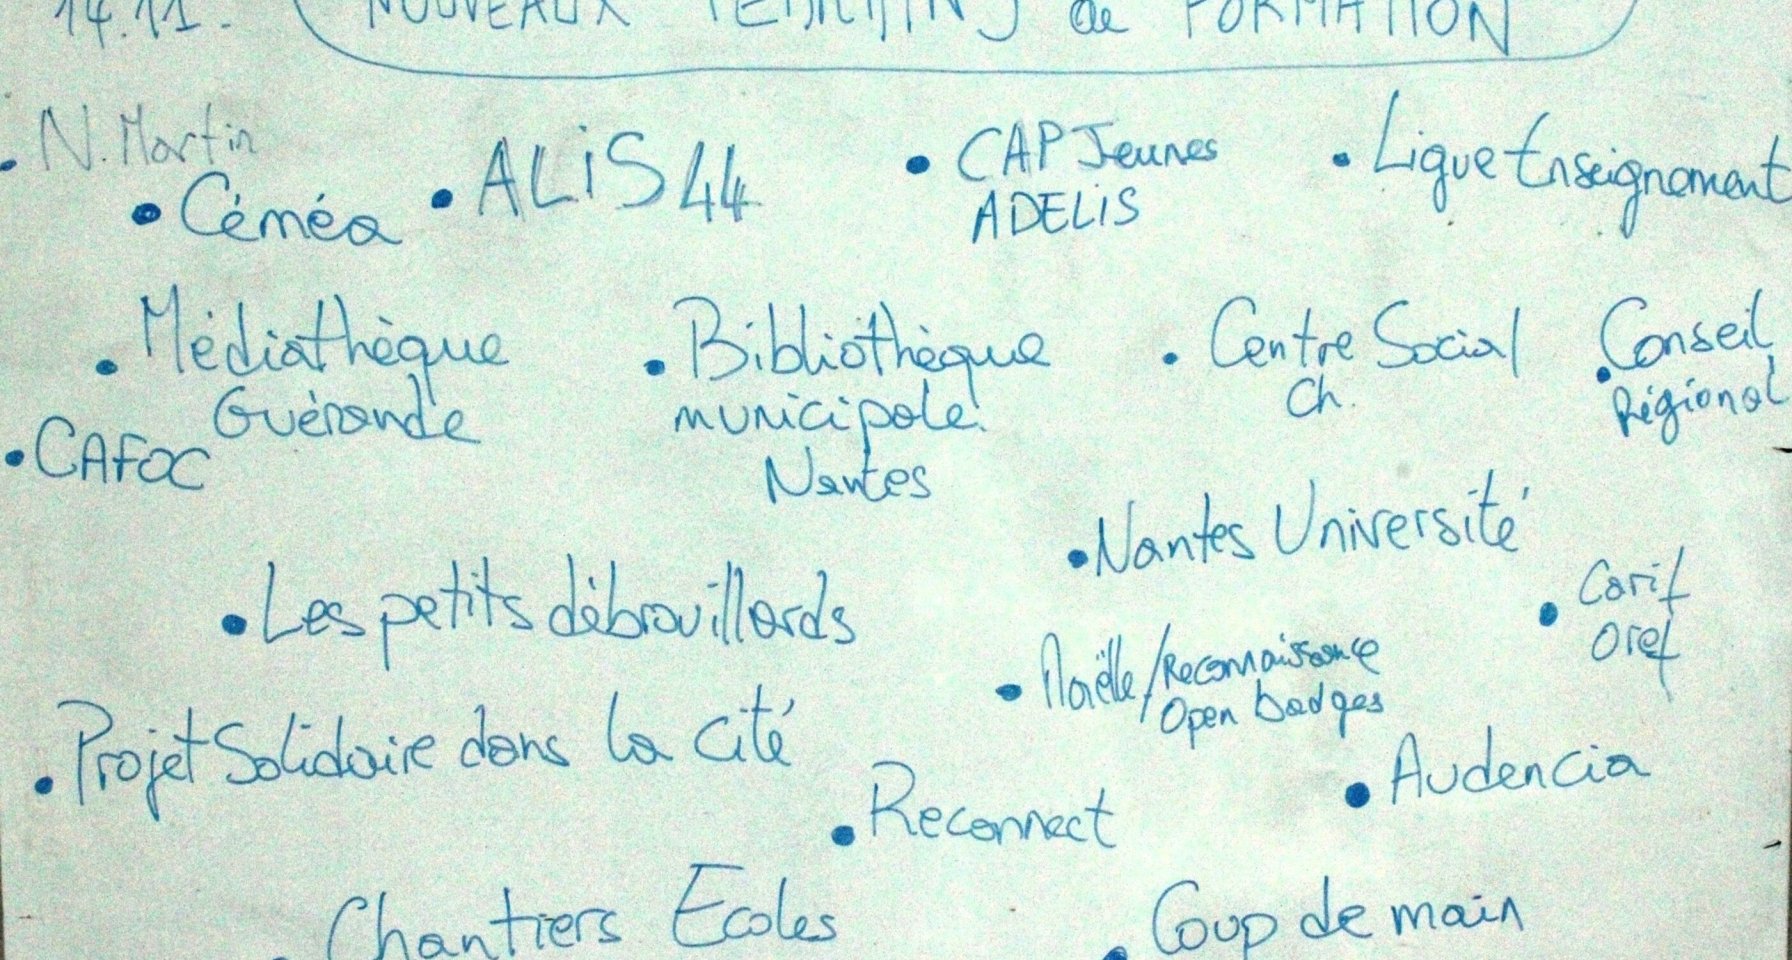 14.11. NOUVEAUX de FORMATION
• N. Martin
• Céméa
• ALIS 44
• CAP Jeunes
ADELIS
• Ligue Enseignement
• Médiathèque
Guérande
• Bibliothèque
municipale.
Nantes
• Centre Social
Ch.
• Conseil
Régional
• CAFOC
• Nantes Université
• Les petits débrouillards
• Carif
Oref
• /Reconnaissance
Open badges
• Projet Solidaire dans la cité
• Audencia
• Reconnect
• Chantiers Ecoles
• Coup de main